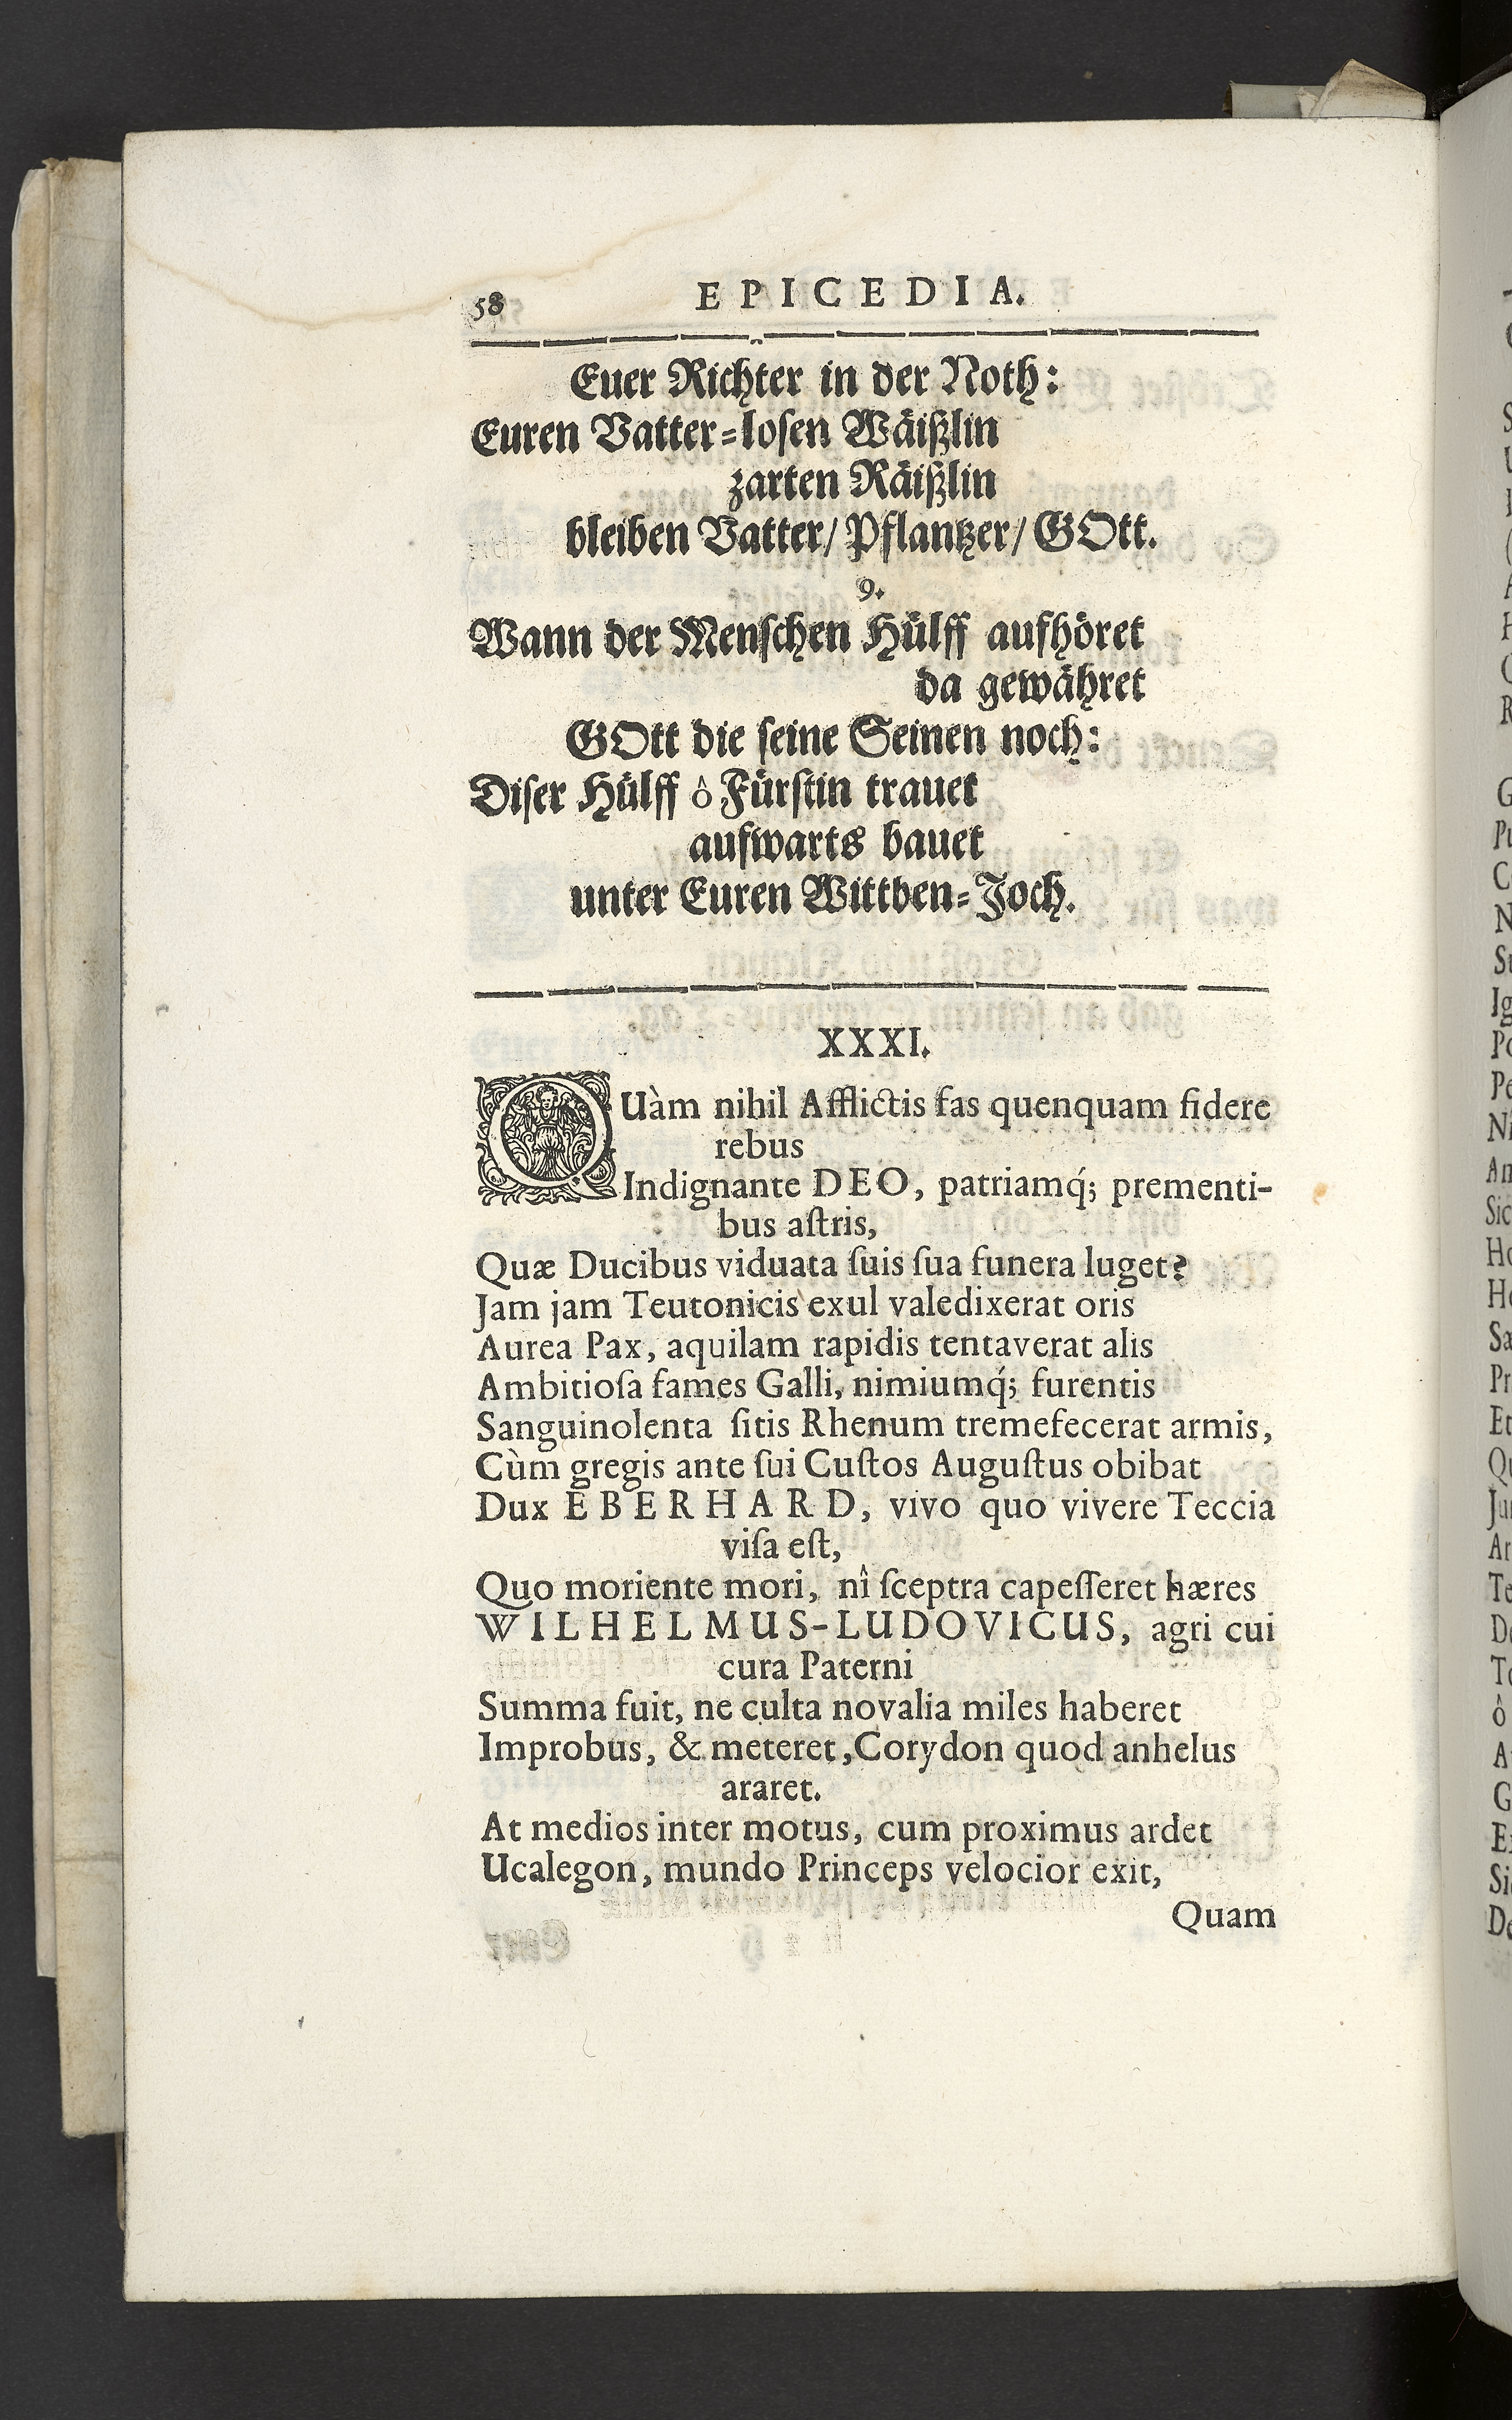 58 EPICEDIA.
Euer Richter in der Noth:
Euren Vatter-losen Wäißlin
zarten Räißlin
bleiben Vatter/ Pflantzer/ GOtt.
9.
Wann der Menschen Hülff aufhöret
da gewähret
GOtt die seine Seinen noch:
Diser Hülff ô Fürstin trauet
aufwarts bauet
unter Euren Wittben-Joch.
XXXI.
QUàm nihil Afflictis fas quenquam fidere
rebus
Indignante DEO, patriamq́; prementi-
bus aſtris,
Quæ Ducibus viduata ſuis ſua funera luget?
Jam jam Teutonicis exul valedixerat oris
Aurea Pax, aquilam rapidis tentaverat alis
Ambitioſa fames Galli, nimiumq́; furentis
Sanguinolenta ſitis Rhenum tremefecerat armis,
Cùm gregis ante ſui Cuſtos Auguſtus obibat
Dux EBERHARD, vivo quo vivere Teccia
viſa eſt,
Quo moriente mori, nî ſceptra capeſſeret hæres
WILHELMUS-LUDOVICUS, agri cui
cura Paterni
Summa fuit, ne culta novalia miles haberet
Improbus, & meteret, Corydon quod anhelus
araret.
At medios inter motus, cum proximus ardet
Ucalegon, mundo Princeps velocior exit,
Quam